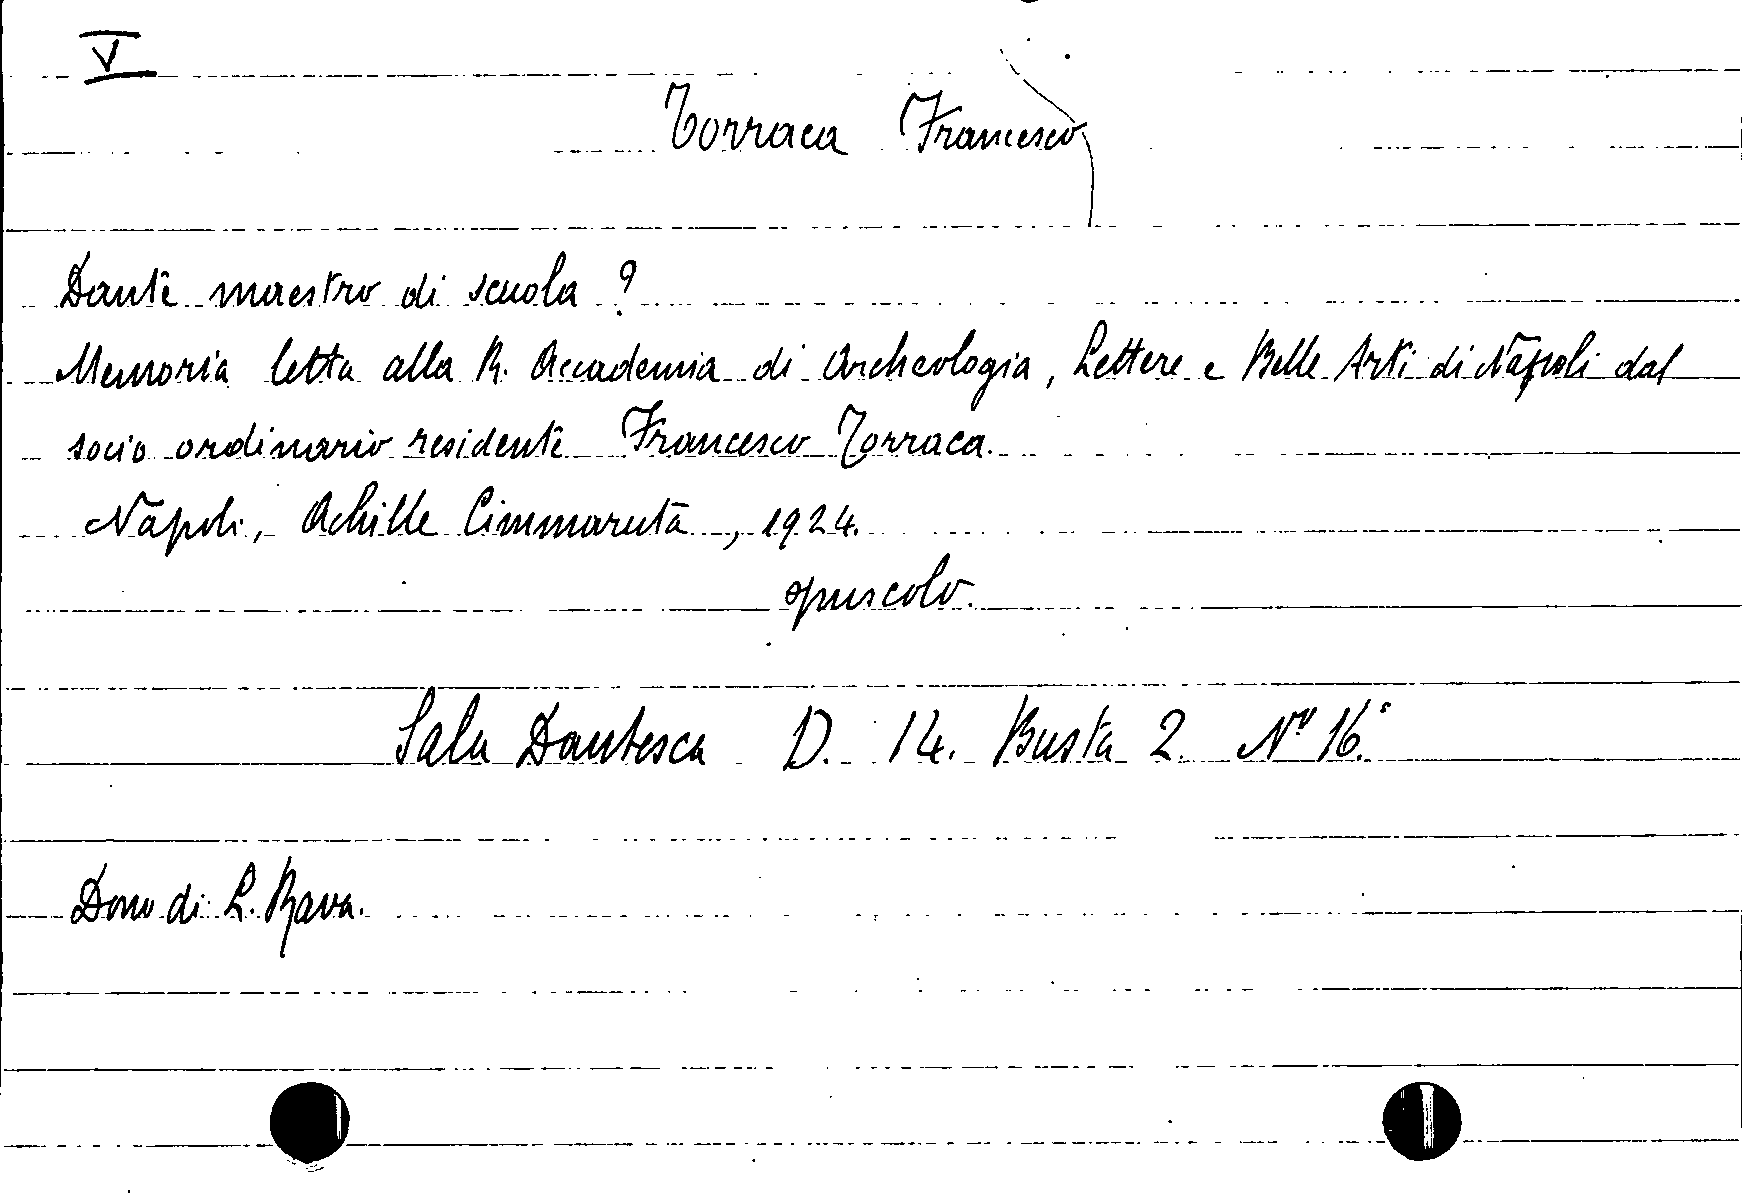 V
Torraca Francesco
Dante maestro di scuola ?
Memoria letta alla R. Accademia di Archeologia, Lettere e Belle Arti di Napoli dal
socio ordinario residente Francesco Torraca.
Napoli, Achille Cimmaruta, 1924.
opuscolo.
Sala Dantesca D. 14. Busta 2. N° 16.
Dono di L. Rava.